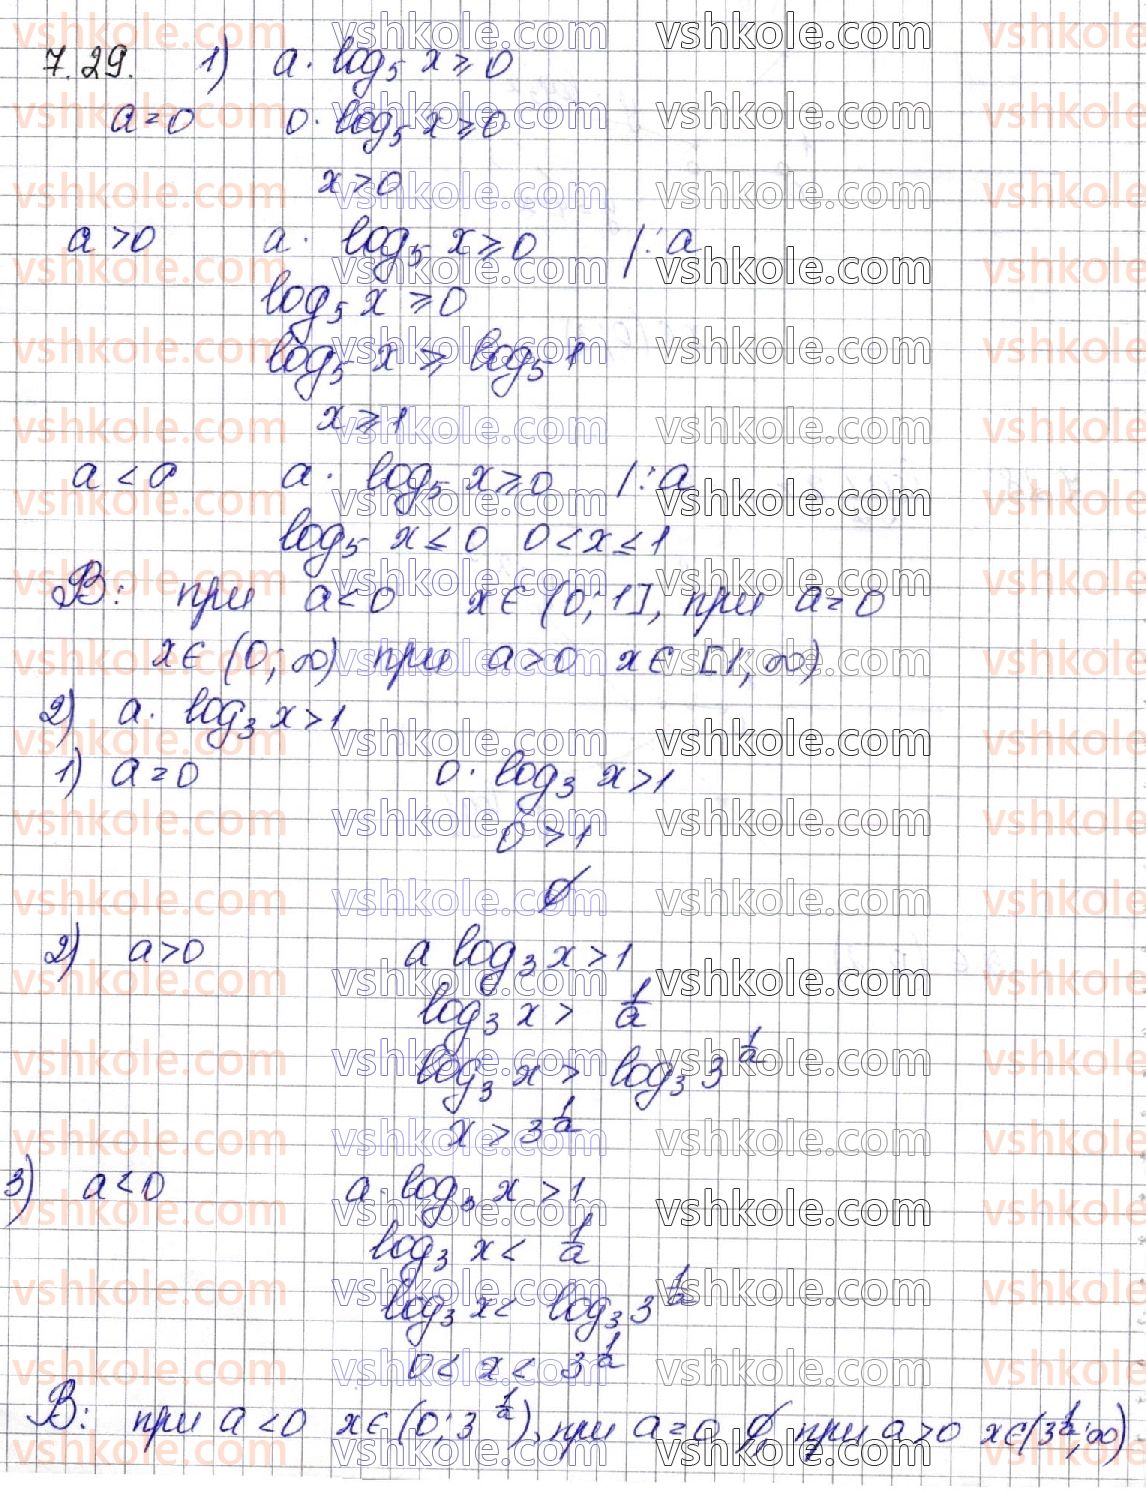 7.29. 1) a · log₅ x ≥ 0
a = 0 0 · log₅ x ≥ 0
x > 0
a > 0 a · log₅ x ≥ 0 | : a
log₅ x ≥ 0
log₅ x ≥ log₅ 1
x ≥ 1
a < 0 a · log₅ x ≥ 0 | : a
log₅ x ≤ 0 0 < x ≤ 1
В: при a < 0 x ∈ (0; 1], при a = 0
x ∈ (0; ∞) при a > 0 x ∈ [1; ∞)
2) a · log₃ x > 1
1) a = 0 0 · log₃ x > 1
0 > 1
∅
2) a > 0 a log₃ x > 1
log₃ x > 1/a
log₃ x > log₃ 3^(1/a)
x > 3^(1/a)
3) a < 0 a · log₃ x > 1
log₃ x < 1/a
log₃ x < log₃ 3^(1/a)
0 < x < 3^(1/a)
В: при a < 0 x ∈ (0; 3^(1/a)), при a = 0 ∅, при a > 0 x ∈ (3^(1/a); ∞)
vshkole.com